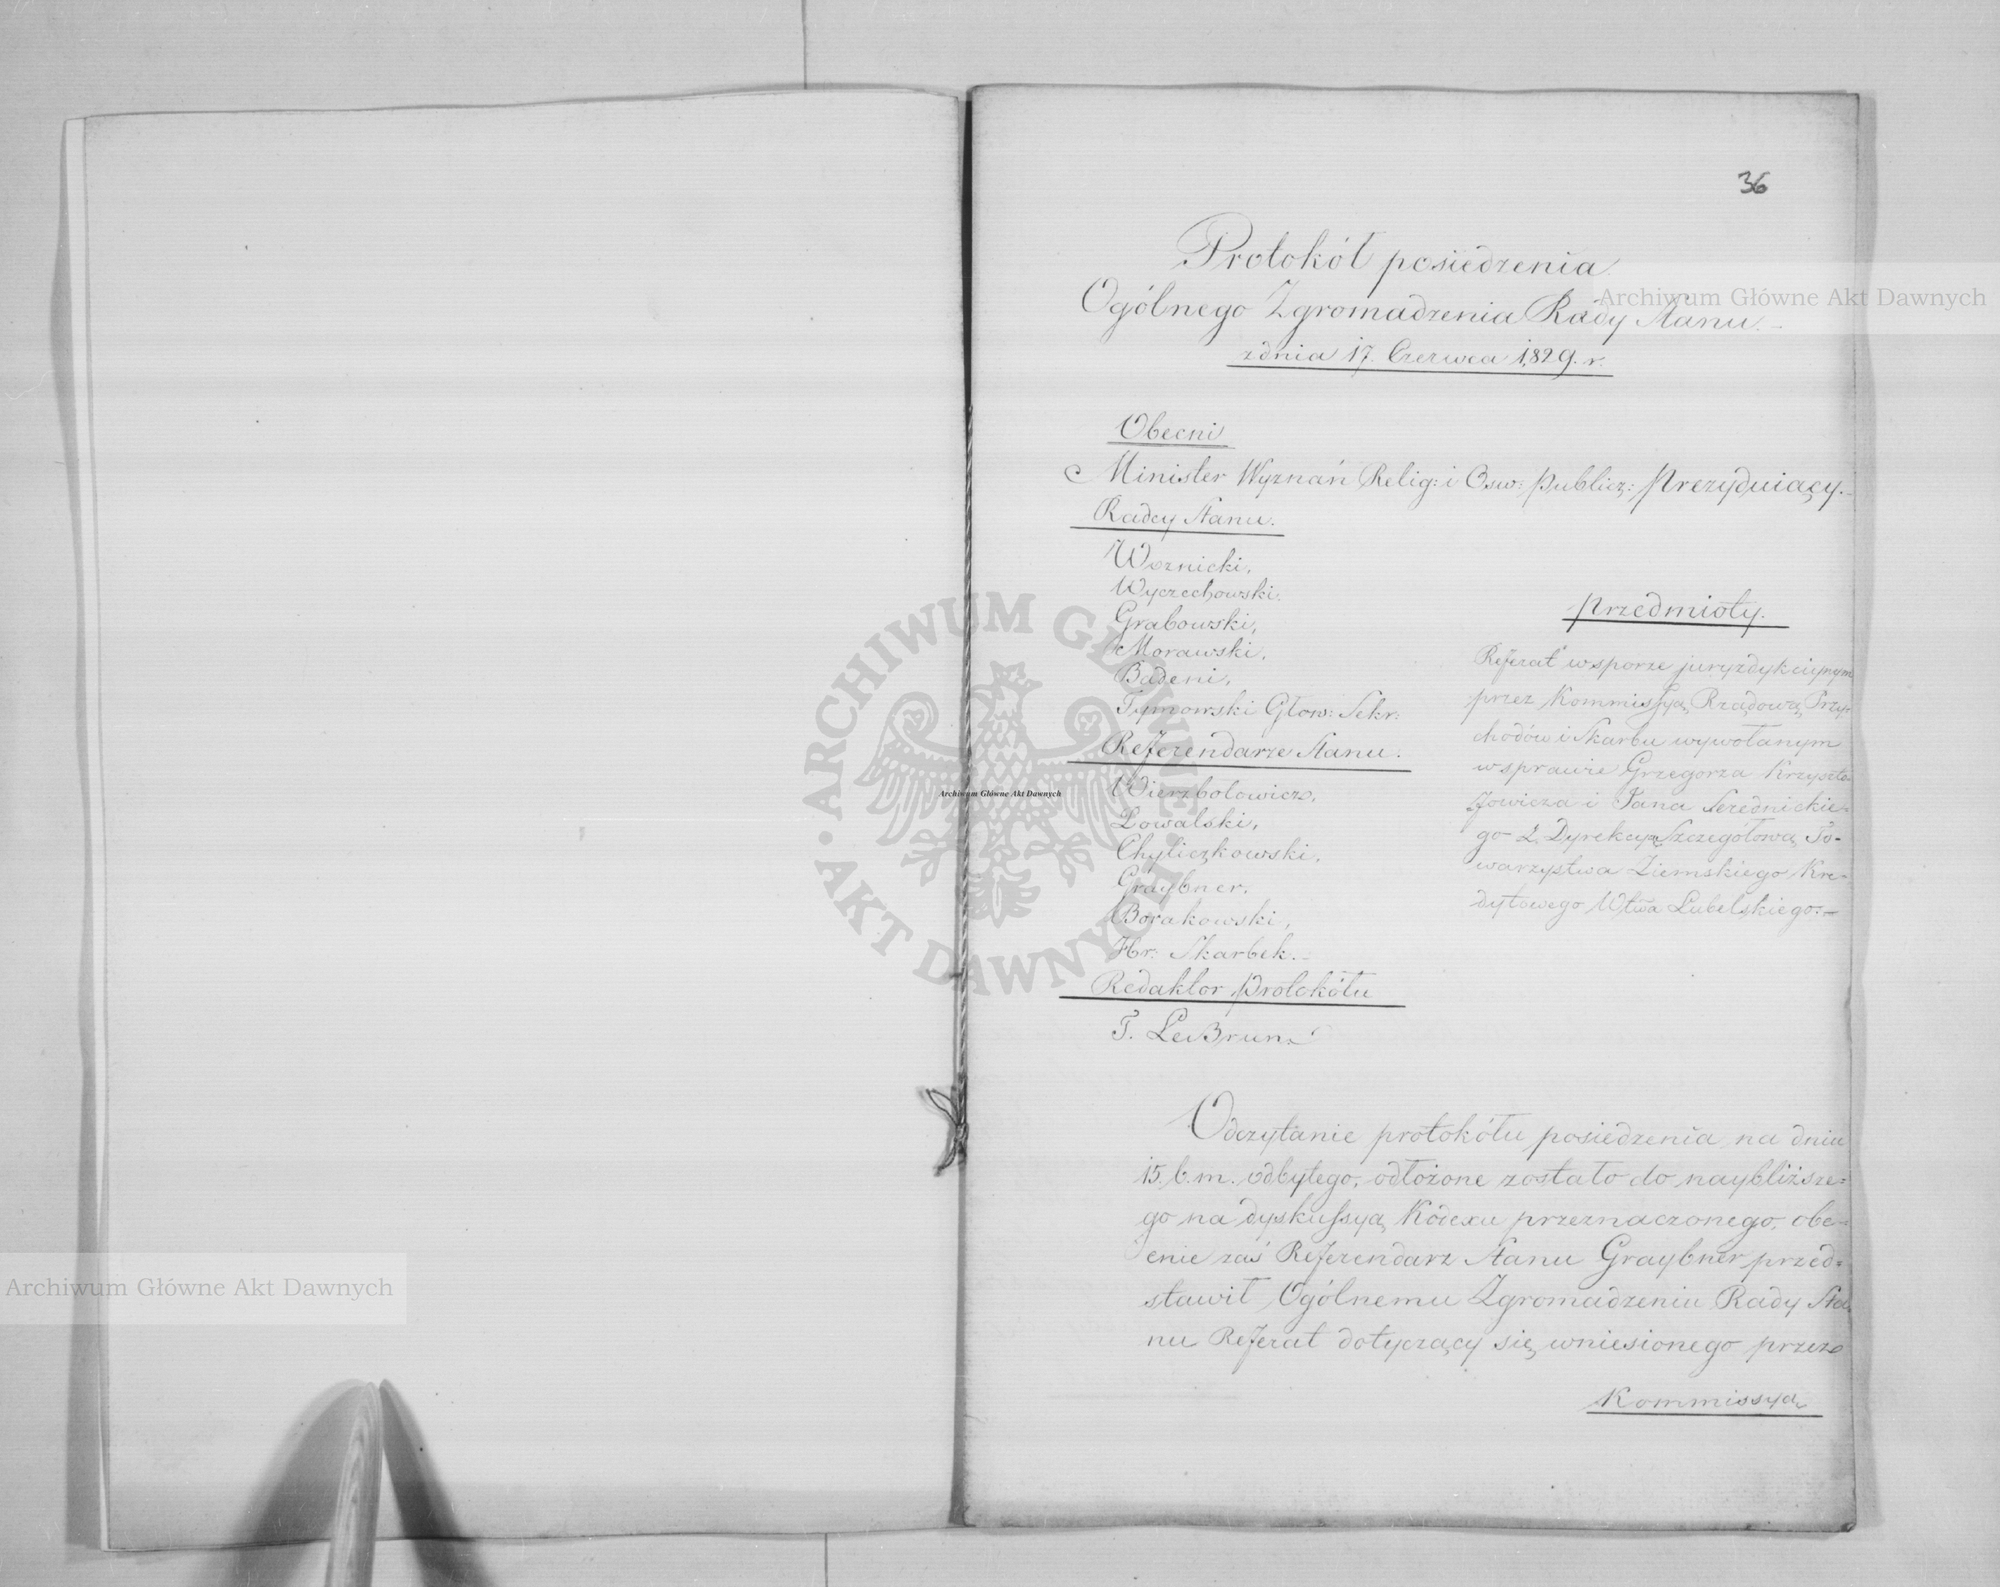 36
Protokół posiedzenia
Ogólnego Zgromadzenia Rady Stanu.
z dnia 17. Czerwca 1829. r.
Obecni
Minister Wyznań Relig: i Osw: Publicz: Prezyduiący.
Radcy Stanu.
Woznicki,
Wyczechowski.
Grabowski,
Morawski,
Badeni,
Tymowski Głow: Sekr:
Referendarze Stanu.
Wierzbołowicz,
Łowalski,
Chyliczkowski,
Graybner,
Borakowski,
Hr: Skarbek.
Redaktor Protokółu
T. LeBrun.
Przedmioty.
Referat w sporze juryzdykcyinym
przez Kommissyą Rządową Przy-
chodów i Skarbu wywołanym
w sprawie Grzegorza Krzyszto
fowicza i Jana Serednickie-
go z Dyrekcyą Szczegółową To-
warzystwa Ziemskiego Kre-
dytowego Wtwa Lubelskiego.
Odczytanie protokółu posiedzenia na dniu
15. b. m. odbytego, odłożone zostało do naybliższe-
go na dyskussyą Kodexu przeznaczonego, obe-
cnie zaś Referendarz Stanu Graybner przed-
stawił Ogólnemu Zgromadzeniu Rady Sta-
nu Referat dotyczący się wniesionego przez
Kommissyą
Archiwum Główne Akt Dawnych
Archiwum Główne Akt Dawnych
Archiwum Główne Akt Dawnych
ARCHIWUM GŁÓWNE
AKT DAWNYCH